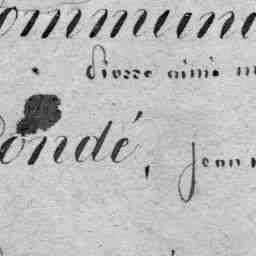 ommun
pierre aimé m
ondé, jean